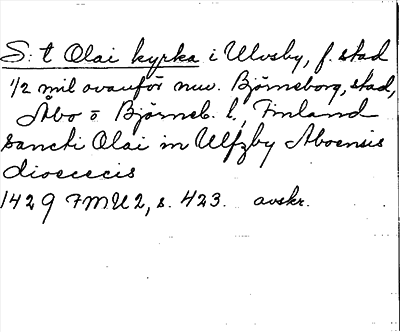 S:t Olai kyrka i Ulvsby, f. stad
1/2 mil ovanför nuv. Björneborg, stad,
Åbo o Björneb. l., Finland
Sancti Olai in Ulfzby Aboensis
diocecis
1429 FMU2, s. 423. avskr.